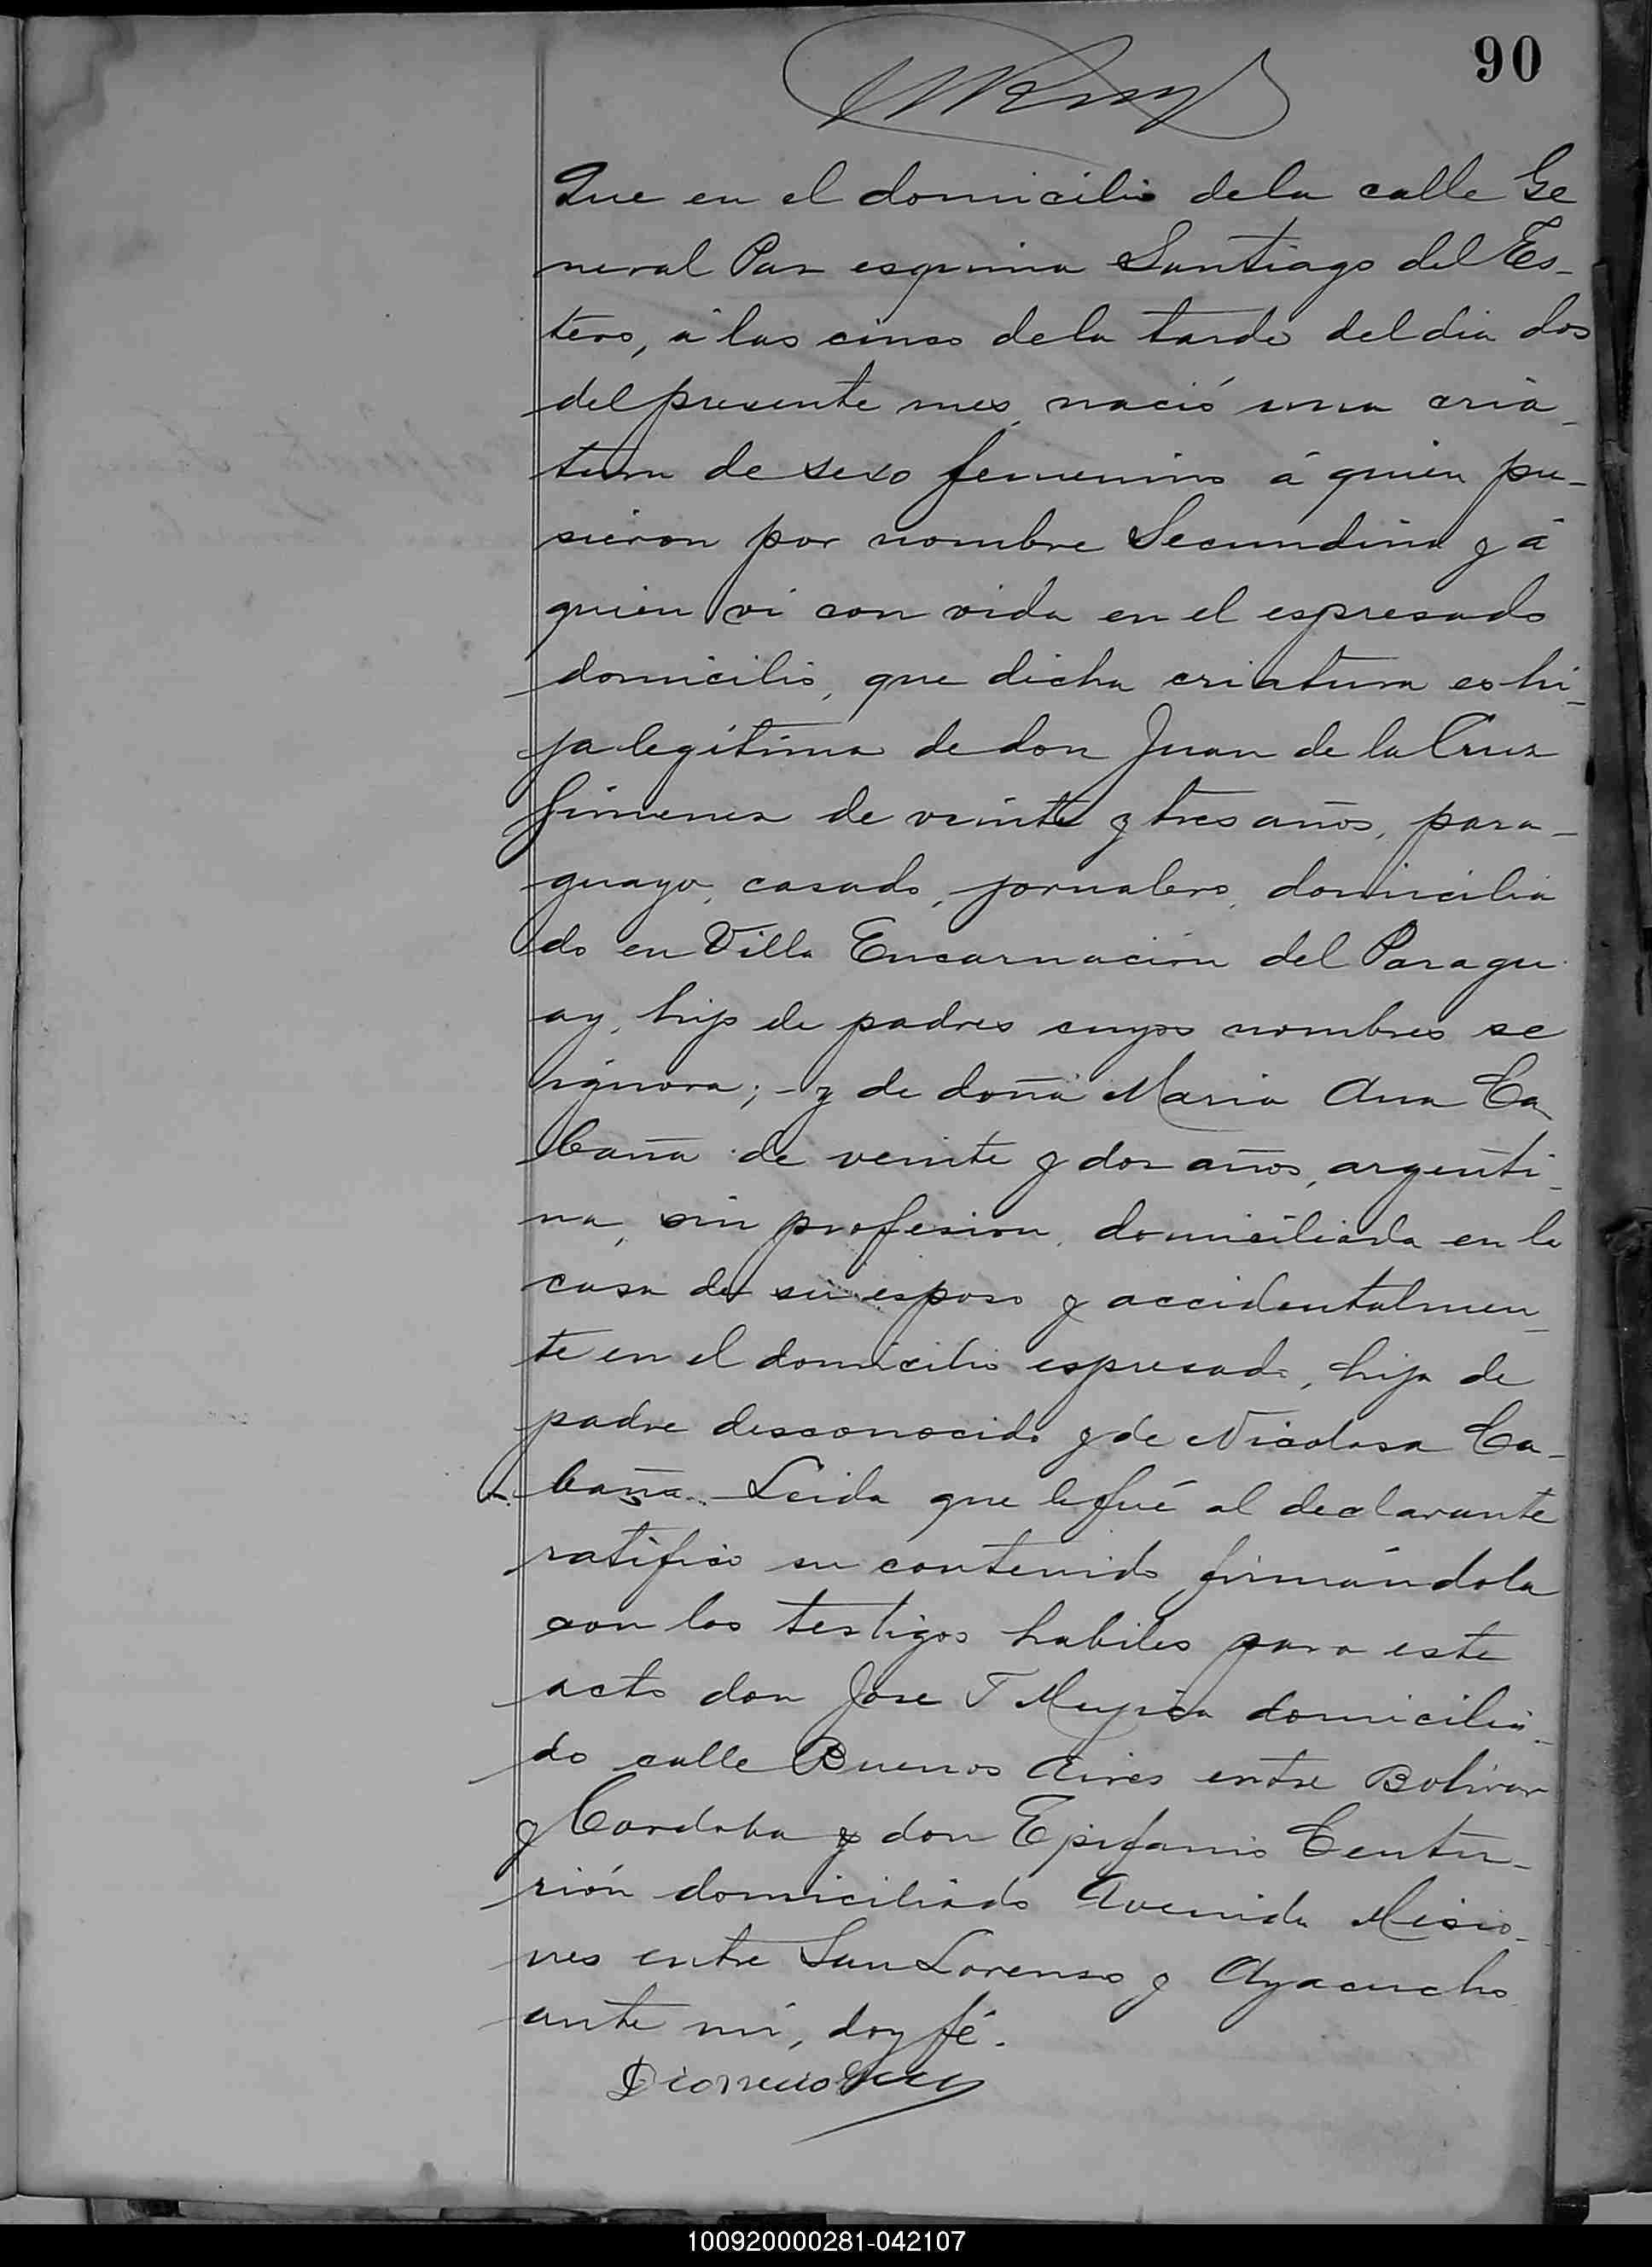 90
Que en el domicilio de la calle Ge
neral Paz esquina Santiago del Es-
tero, á las cinco de la tarde del dia dos
del presente mes, nació una cria-
tura de sexo femenino á quien pu-
sieron por nombre Secundina y á
quien vi con vida en el espresado
domicilio, que dicha criatura es hi-
ja legítima de don Juan de la Cruz
Gimenez de veinte y tres años, para-
guayo, casado, jornalero, domicilia
do en Villa Encarnación del Paragu
ay, hijo de padres cuyos nombres se
ignora; - y de doña Maria Ana Ca
baña de veinte y dos años, argenti-
na, sin profesion, domiciliada en la
casa de su esposo y accidentalmen-
te en el domicilio espresado, hija de
padre desconocido y de Nicolasa Ca-
baña. Leida que le fué al declarante
ratificó su contenido firmándola
con los testigos habiles para este
acto don Jose T Mujica domicilia-
do calle Buenos Aires entre Bolivar
y Cordoba y don Epifanio Centu-
rión domiciliado Avenida Misio-
nes entre San Lorenzo y Ayacucho
ante mí, doy fé.
Dionicio
100920000281-042107